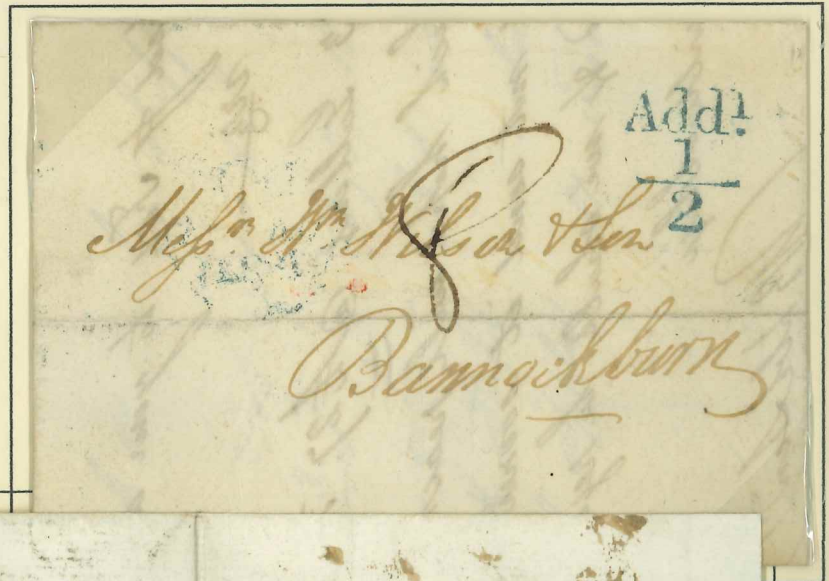 Addl.
1
2
8
Messrs Wm Wilson & Son
Bannockburn